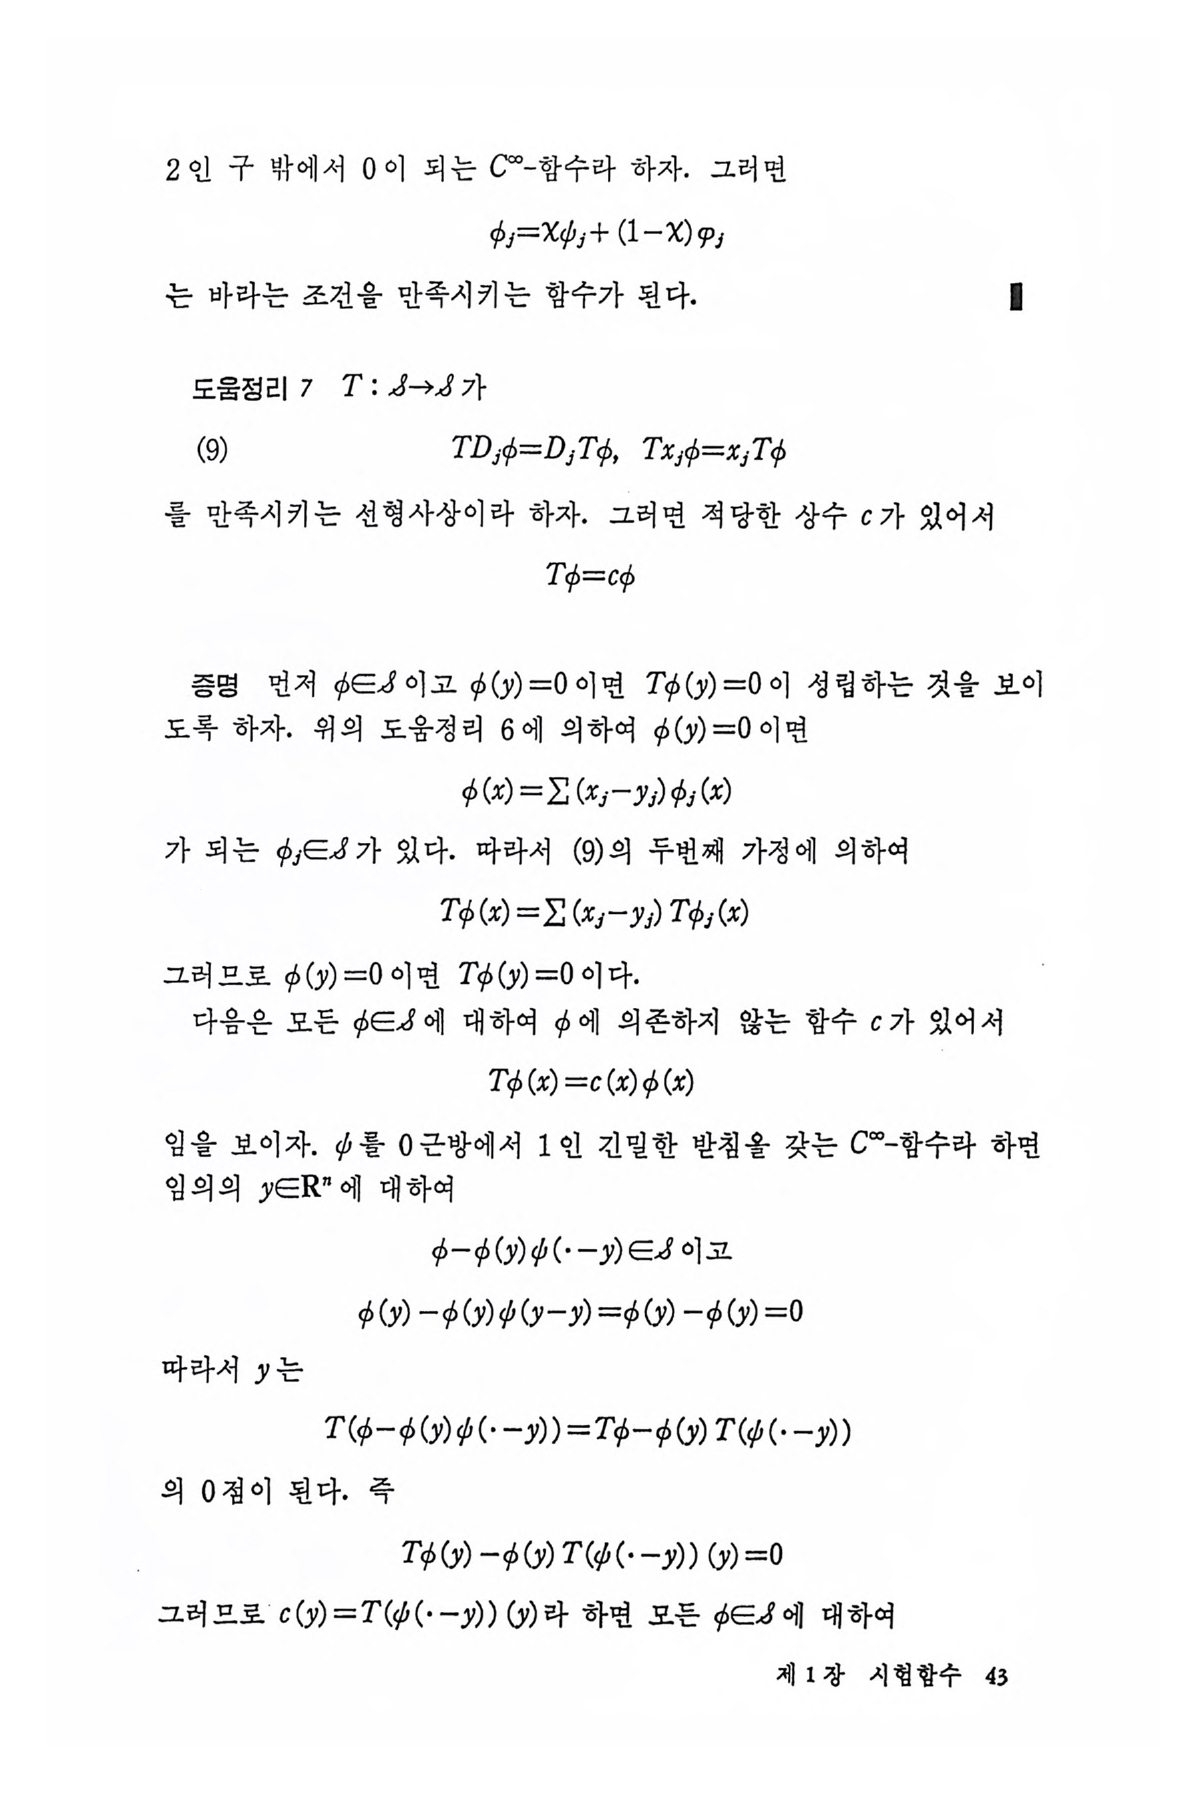 2인 구 밖에서 0이 되는 C^∞-함수라 하자. 그러면
ϕ_j=χψ_j+(1−χ)φ_j
는 바라는 조건을 만족시키는 함수가 된다. ▮
도움정리 7 T : 𝒮→𝒮가
(9) TD_jϕ=D_jTϕ, Tx_jϕ=x_jTϕ
를 만족시키는 선형사상이라 하자. 그러면 적당한 상수 c가 있어서
Tϕ=cϕ
증명 먼저 ϕ∈𝒮이고 ϕ(y)=0이면 Tϕ(y)=0이 성립하는 것을 보이
도록 하자. 위의 도움정리 6에 의하여 ϕ(y)=0이면
ϕ(x)=∑(x_j−y_j)ϕ_j(x)
가 되는 ϕ_j∈𝒮가 있다. 따라서 (9)의 두번째 가정에 의하여
Tϕ(x)=∑(x_j−y_j)Tϕ_j(x)
그러므로 ϕ(y)=0이면 Tϕ(y)=0이다.
다음은 모든 ϕ∈𝒮에 대하여 ϕ에 의존하지 않는 함수 c가 있어서
Tϕ(x)=c(x)ϕ(x)
임을 보이자. ψ를 0근방에서 1인 긴밀한 받침을 갖는 C^∞-함수라 하면
임의의 y∈R^n에 대하여
ϕ−ϕ(y)ψ(·−y)∈𝒮이고
ϕ(y)−ϕ(y)ψ(y−y)=ϕ(y)−ϕ(y)=0
따라서 y는
T(ϕ−ϕ(y)ψ(·−y))=Tϕ−ϕ(y)T(ψ(·−y))
의 0점이 된다. 즉
Tϕ(y)−ϕ(y)T(ψ(·−y))(y)=0
그러므로 c(y)=T(ψ(·−y))(y)라 하면 모든 ϕ∈𝒮에 대하여
제1장 시험함수 43